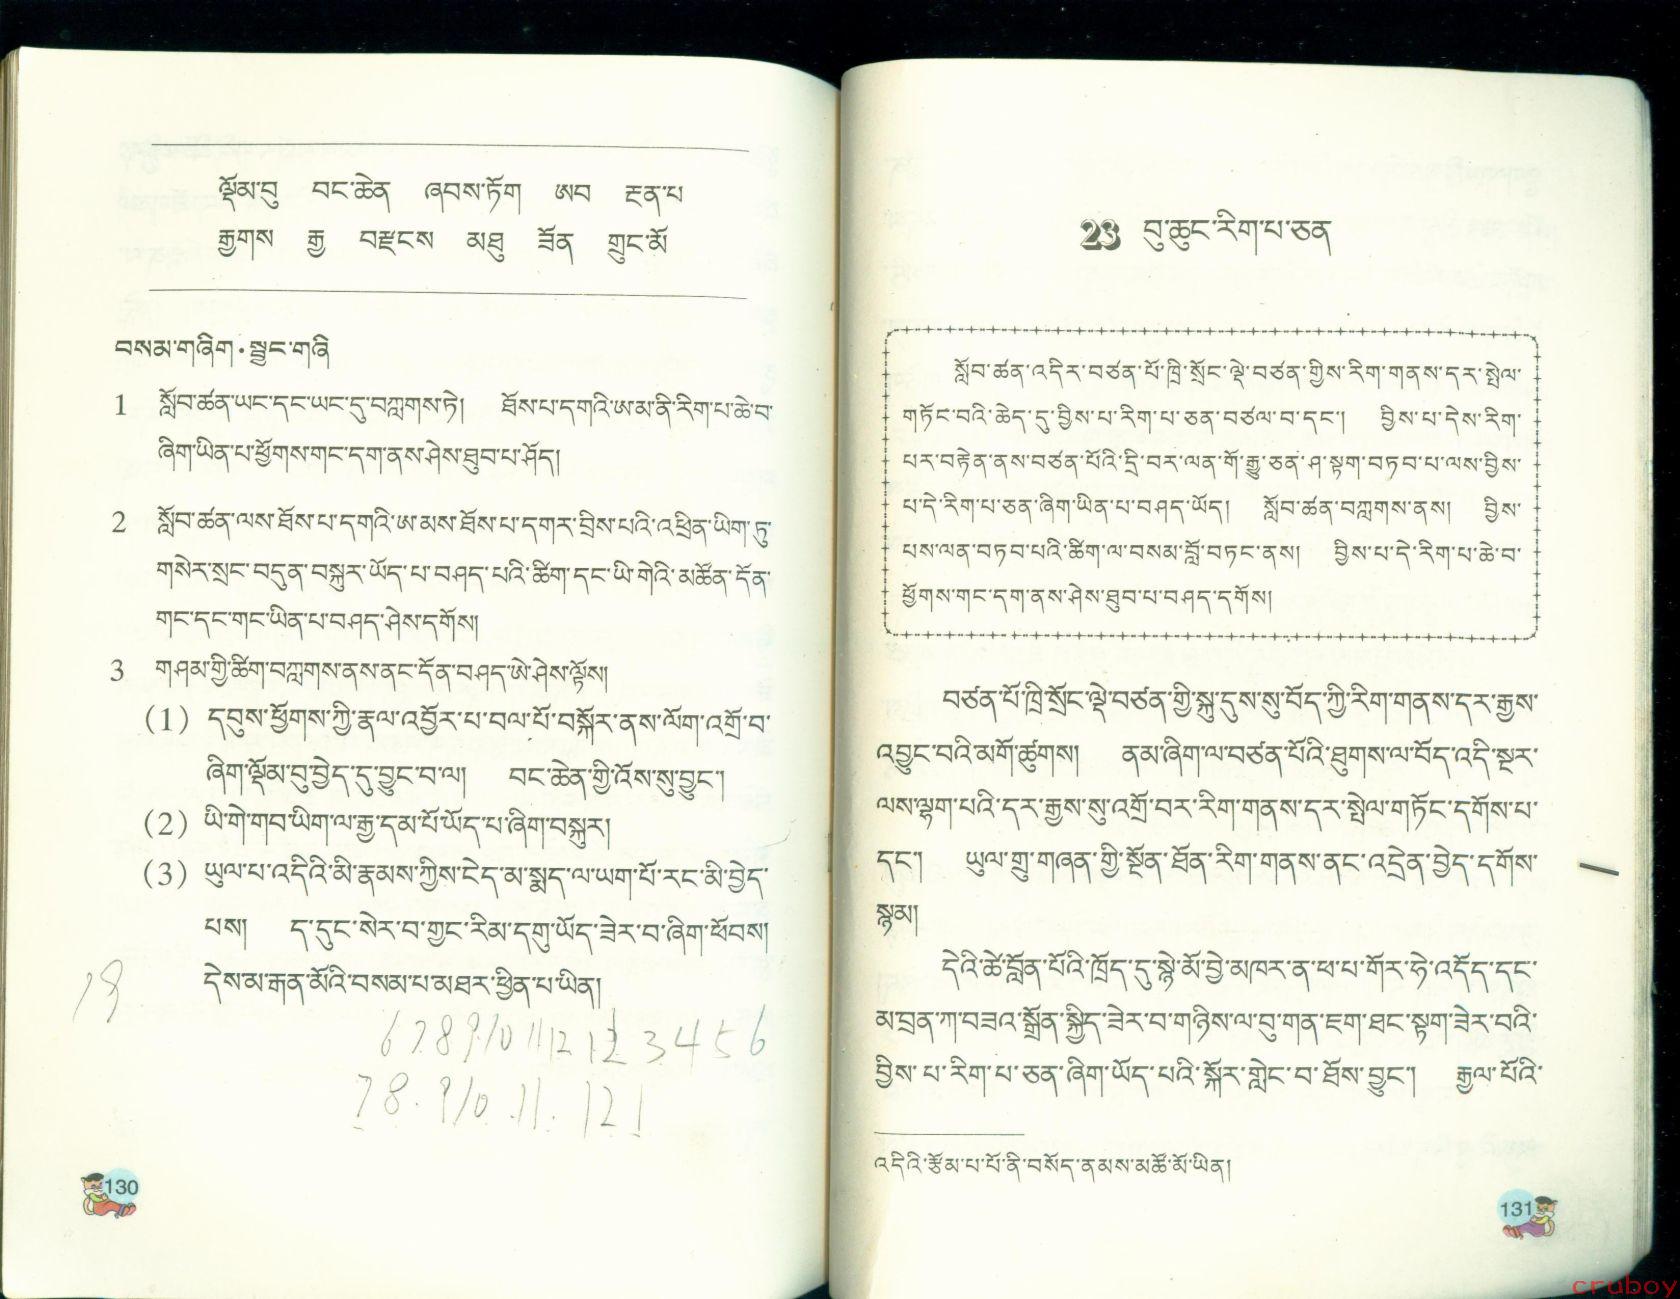 ལྡོམ་བུ བང་ཆེན ཞབས་ཏོག ཨབ རྔན་པ
རྒྱགས རྒྱ བརྫངས མཐུ ཟོན གྲུང་མོ
བསམ་གཞིག・སྦྱང་གཞི
1 སློབ་ཚན་ཡང་དང་ཡང་དུ་བཀླགས་ཏེ། ཐོས་པ་དགའི་ཨ་མ་ནི་རིག་པ་ཆེ་བ་
ཞིག་ཡིན་པ་ཕྱོགས་གང་དག་ནས་ཤེས་ཐུབ་པ་ཤོད།
2 སློབ་ཚན་ལས་ཐོས་པ་དགའི་ཨ་མས་ཐོས་པ་དགར་བྲིས་པའི་འཕྲིན་ཡིག་ཏུ་
གསེར་སྲང་བདུན་བསྐུར་ཡོད་པ་བཤད་པའི་ཚིག་དང་ཡི་གེའི་མཚོན་དོན་
གང་དང་གང་ཡིན་པ་བཤད་ཤེས་དགོས།
3 གཤམ་གྱི་ཚིག་བཀླགས་ནས་ནང་དོན་བཤད་ཨེ་ཤེས་ལྟོས།
(1) དབུས་ཕྱོགས་ཀྱི་རྣལ་འབྱོར་པ་བལ་པོ་བསྐོར་ནས་ལོག་འགྲོ་བ་
ཞིག་ལྡོམ་བུ་བྱེད་དུ་བྱུང་བ་ལ། བང་ཆེན་གྱི་འོས་སུ་བྱུང་།
(2) ཡི་གེ་གབ་ཡིག་ལ་རྒྱ་དམ་པོ་ཡོད་པ་ཞིག་བསྐུར།
(3) ཡུལ་པ་འདིའི་མི་རྣམས་ཀྱིས་ངེད་མ་སྨད་ལ་ཡག་པོ་རང་མི་བྱེད་
པས། ད་དུང་སེར་བ་གྱང་རིམ་དགུ་ཡོད་ཟེར་བ་ཞིག་ཕོབས།
དེས་མ་རྒན་མོའི་བསམ་པ་མཐར་ཕྱིན་པ་ཡིན།
18
6 7 8 9 10 11 12 1 2 3 4 5 6
7 8 . 9 10 . 11 . 12 1
130
23 བུ་ཆུང་རིག་པ་ཅན
སློབ་ཚན་འདིར་བཙན་པོ་ཁྲི་སྲོང་ལྡེ་བཙན་གྱིས་རིག་གནས་དར་སྤེལ་
གཏོང་བའི་ཆེད་དུ་བྱིས་པ་རིག་པ་ཅན་བཙལ་བ་དང་། བྱིས་པ་དེས་རིག་
པར་བརྟེན་ནས་བཙན་པོའི་དྲི་བར་ལན་གོ་རྒྱུ་ཅན་ཤ་སྟག་བཏབ་པ་ལས་བྱིས་
པ་དེ་རིག་པ་ཅན་ཞིག་ཡིན་པ་བཤད་ཡོད། སློབ་ཚན་བཀླགས་ནས། བྱིས་
པས་ལན་བཏབ་པའི་ཚིག་ལ་བསམ་བློ་བཏང་ནས། བྱིས་པ་དེ་རིག་པ་ཆེ་བ་
ཕྱོགས་གང་དག་ནས་ཤེས་ཐུབ་པ་བཤད་དགོས།
བཙན་པོ་ཁྲི་སྲོང་ལྡེ་བཙན་གྱི་སྐུ་དུས་སུ་བོད་ཀྱི་རིག་གནས་དར་རྒྱས་
འབྱུང་བའི་མགོ་ཚུགས། ནམ་ཞིག་ལ་བཙན་པོའི་ཐུགས་ལ་བོད་འདི་སྔར་
ལས་ལྷག་པའི་དར་རྒྱས་སུ་འགྲོ་བར་རིག་གནས་དར་སྤེལ་གཏོང་དགོས་པ་
དང་། ཡུལ་གྲུ་གཞན་གྱི་སྔོན་ཐོན་རིག་གནས་ནང་འདྲེན་བྱེད་དགོས་
སྙམ།
དེའི་ཚེ་བློན་པོའི་ཁྲོད་དུ་སྙེ་མོ་བྱེ་མཁར་ན་ཕ་པ་གོར་ཧེ་འདོད་དང་
མ་བྲན་ཀ་བཟའ་སྒྲོན་སྐྱིད་ཟེར་བ་གཉིས་ལ་བུ་གན་ཇག་ཐང་སྟག་ཟེར་བའི་
བྱིས་པ་རིག་པ་ཅན་ཞིག་ཡོད་པའི་སྐོར་གླེང་བ་ཐོས་བྱུང་། རྒྱལ་པོའི་
འདིའི་རྩོམ་པ་པོ་ནི་བསོད་ནམས་མཚོ་མོ་ཡིན།
131
cruboy